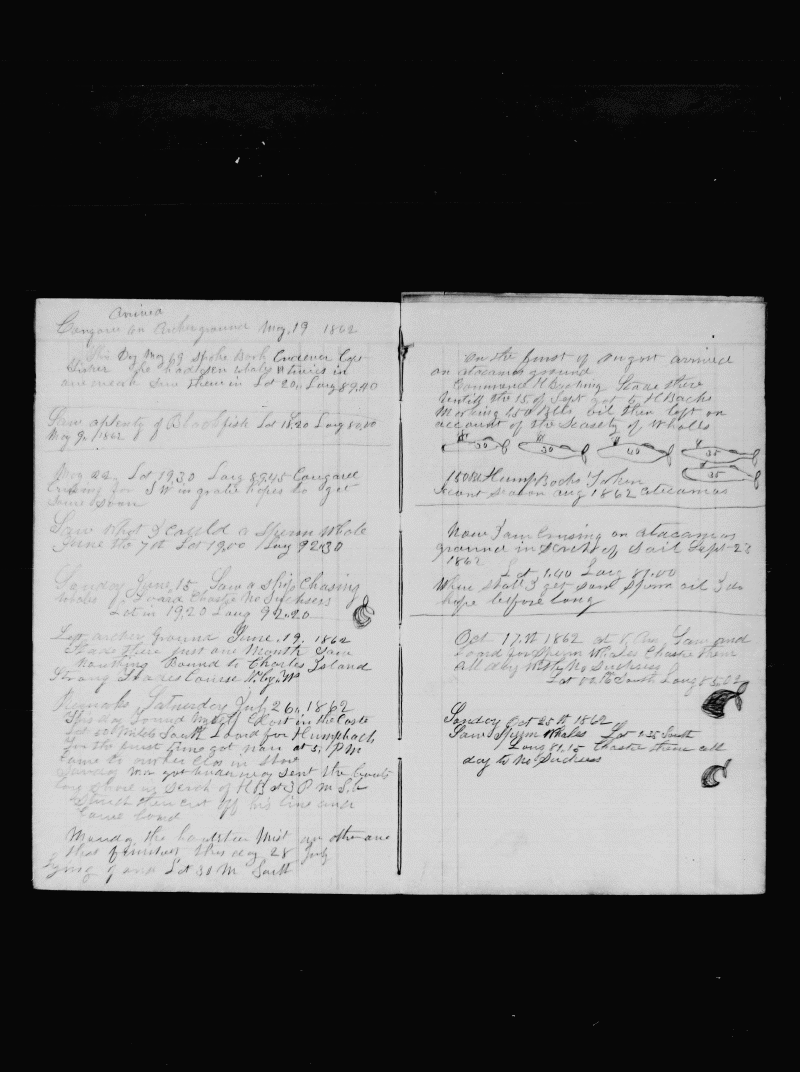 arived
Congaree on Archer ground May, 19 1862
This Day May 69 Spoke Bark Cap
Fisher She had seen whales twice in
one week Seen them in Lat 20, Long 89,40
Saw a plenty of Blackfish Lat 18,20 Long 80,00
May 9, 1862
May 22 Lat 19,30 Long 89,45
Crusing for S W in grate hopes to get
some soon
Saw what I cauld a Sperm Whale
June the 7th Lat 19,00 Long 92,30
Sonday June 15 Saw a Ship Chasing
whales Loard Chaste No Sucksess
Lat in 19,20 Long 92,20
Left archer ground June, 19, 1862
Have there just one Month Saw
Nouthing Bound to Charles Island
Strong Trades Course N. by W
Remarks Saturday July 26, 1862
This day found My Self Close in the Coste
Lat 00 Miles South Loard for Humpbacks
For the furst time got non at 5, P M
Came to ancker Clos in shore
Sonday the boats
long shore in Serch of H B at 3 P M S.b
Struck then cut off his line and
Came bord
Monday the Mist an other one
that finishes this day 28 July
Lat 30 M South
On the furst of August arrived
on atacamas ground
Commenced H Backing Staid there
untill the 15 of Sept got 5 H Backs
Making 150 Bbls oil then left on
account of the Scasety of Whales
30 30 40 35
35
150 Bbl Hump Backs Taken
season aug 1862 atacamas
Now I am Crusing on atacamas
ground in Serch of Sail Sept 23
1862
Lat 1,40 Long 81,00
When shall I get som Sperm oil I do
hope before long
Oct 17.th 1862 at 6 Am, Saw and
Loard for Sperm Whales Chaste them
all day With No Sucksess
Lat 00.16 South Long 85,22
Sonday Oct 25th 1862
Saw Sperm Whales Lat 1.25 South
Long 81,15 Chaste them all
day to No Sucksess